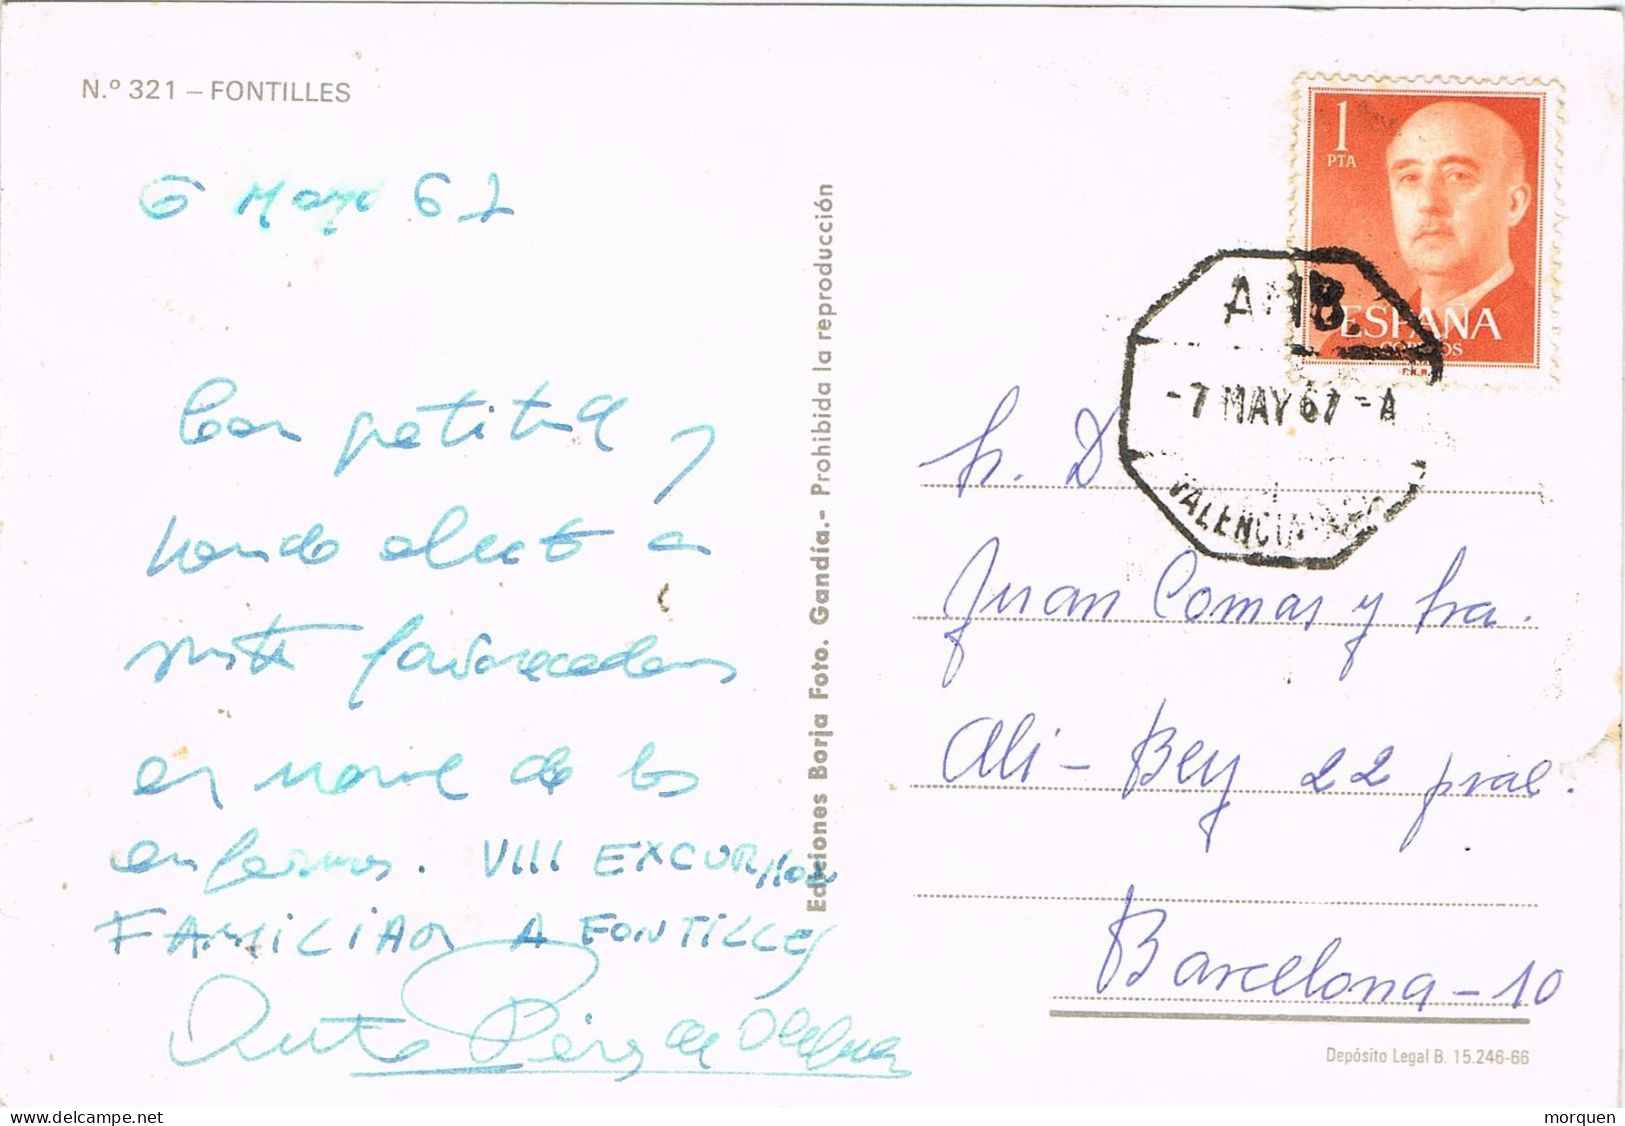 N.º 321 – FONTILLES
6 Mayo 67
Con gratitud y
hondo afecto a
favorecedores
en nombre de los
enfermos. VIII EXCURSION
FAMILIAR A FONTILLES
Pérez de
Ediciones Borja Foto. Gandía.- Prohibida la reproducción
1
PTA
ESPAÑA
CORREOS
F.N.M.
AMB.
-7 MAY 67 -A
VALENCIA
Sr. D
Juan Comas y Sra.
Ali-Bey 22 pral.
Barcelona-10
Depósito Legal B. 15.246-66
morquen